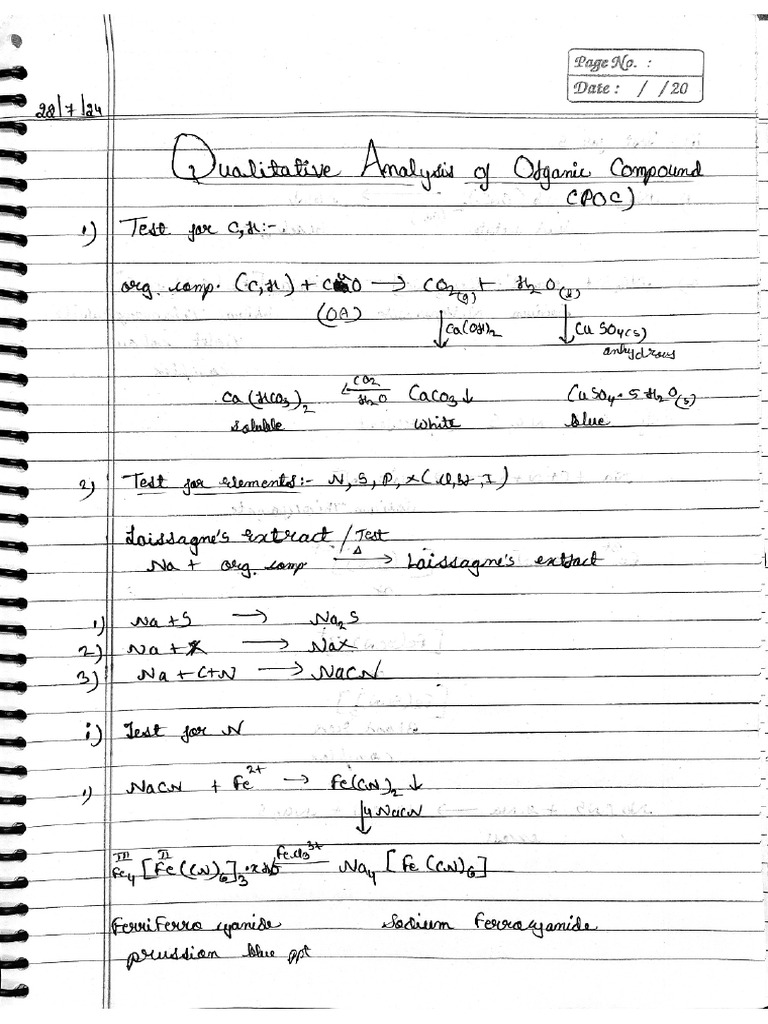 Page No. :
Date : / /20
28/7/24
Qualitative Analysis of Organic Compound
(POC)
1) Test for C,H:-
org. comp. (C,H) + CuO → CO2(g) + H2O(l)
(OA) ↓Ca(OH)2 ↓CuSO4(s)
anhydrous
Ca(HCO3)2 ←CO2/H2O CaCO3↓ CuSO4·5H2O(s)
soluble white blue
2) Test for elements:- N, S, P, X(Cl,Br,I)
Laissagne's extract / Test
Na + org. comp —Δ→ Laissagne's extract
1) Na + S → Na2S
2) Na + X → NaX
3) Na + C+N → NaCN
i) Test for N
1) NaCN + Fe2+ → Fe(CN)2 ↓
↓4NaCN
III II FeCl3 3+
Fe4[Fe(CN)6]3·xH2O — Na4[Fe(CN)6]
Ferriferro cyanide Sodium Ferrocyanide
prussion blue ppt